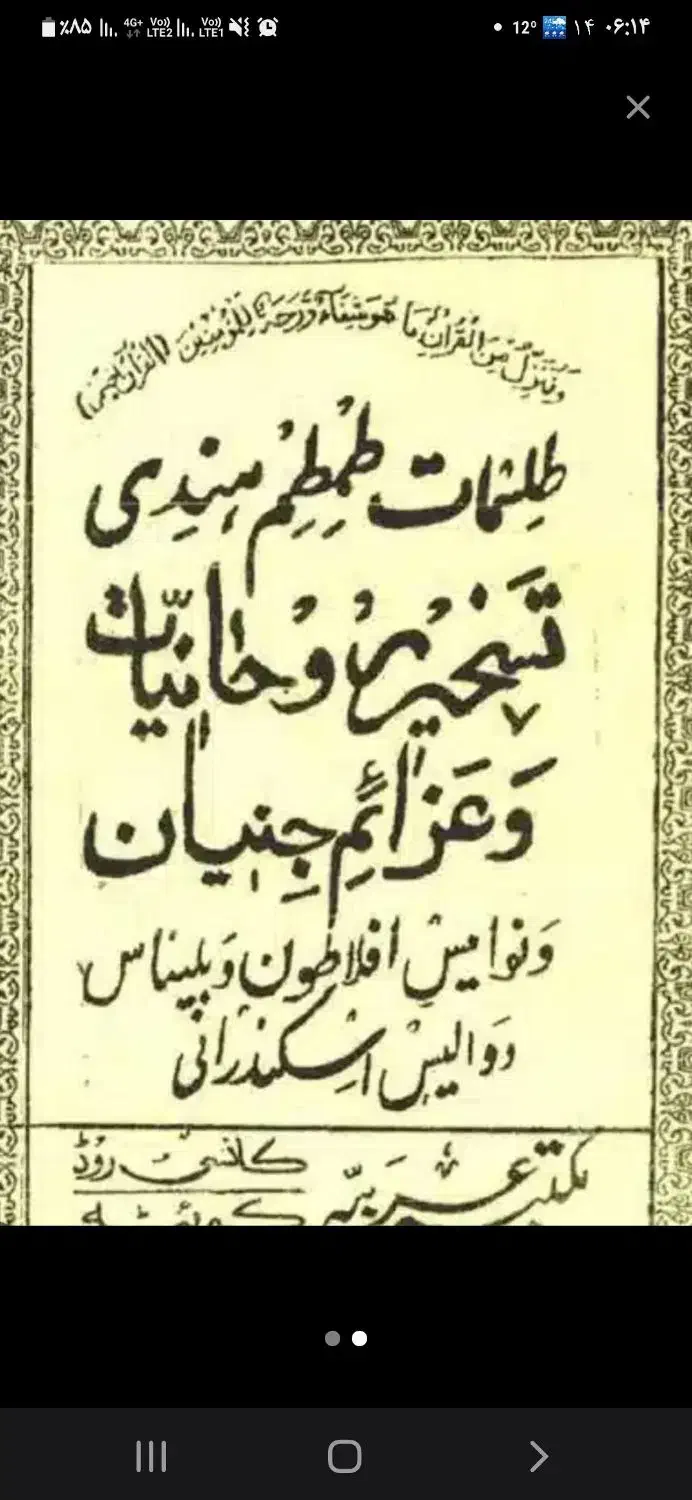 ٪۸۵ 4G+ Vo)) LTE2 Vo)) LTE1 12° ۱۴ ۰۶:۱۴
وَنُنَزِّلُ مِنَ الْقُرْآنِ مَا هُوَ شِفَاءٌ وَرَحْمَةٌ لِلْمُؤْمِنِينَ (القرآن
طِلِسْمات طُمْطُمِ هِندِی
تَسخیرِ رُوحانیّات
وَعَزائمِ جِنیان
وَنوامیسِ افلاطون وَبلیناس
وَوالیسِ اسکندرانی
مکتبہ عربیّہ
کانسی روڈ
کوئٹہ